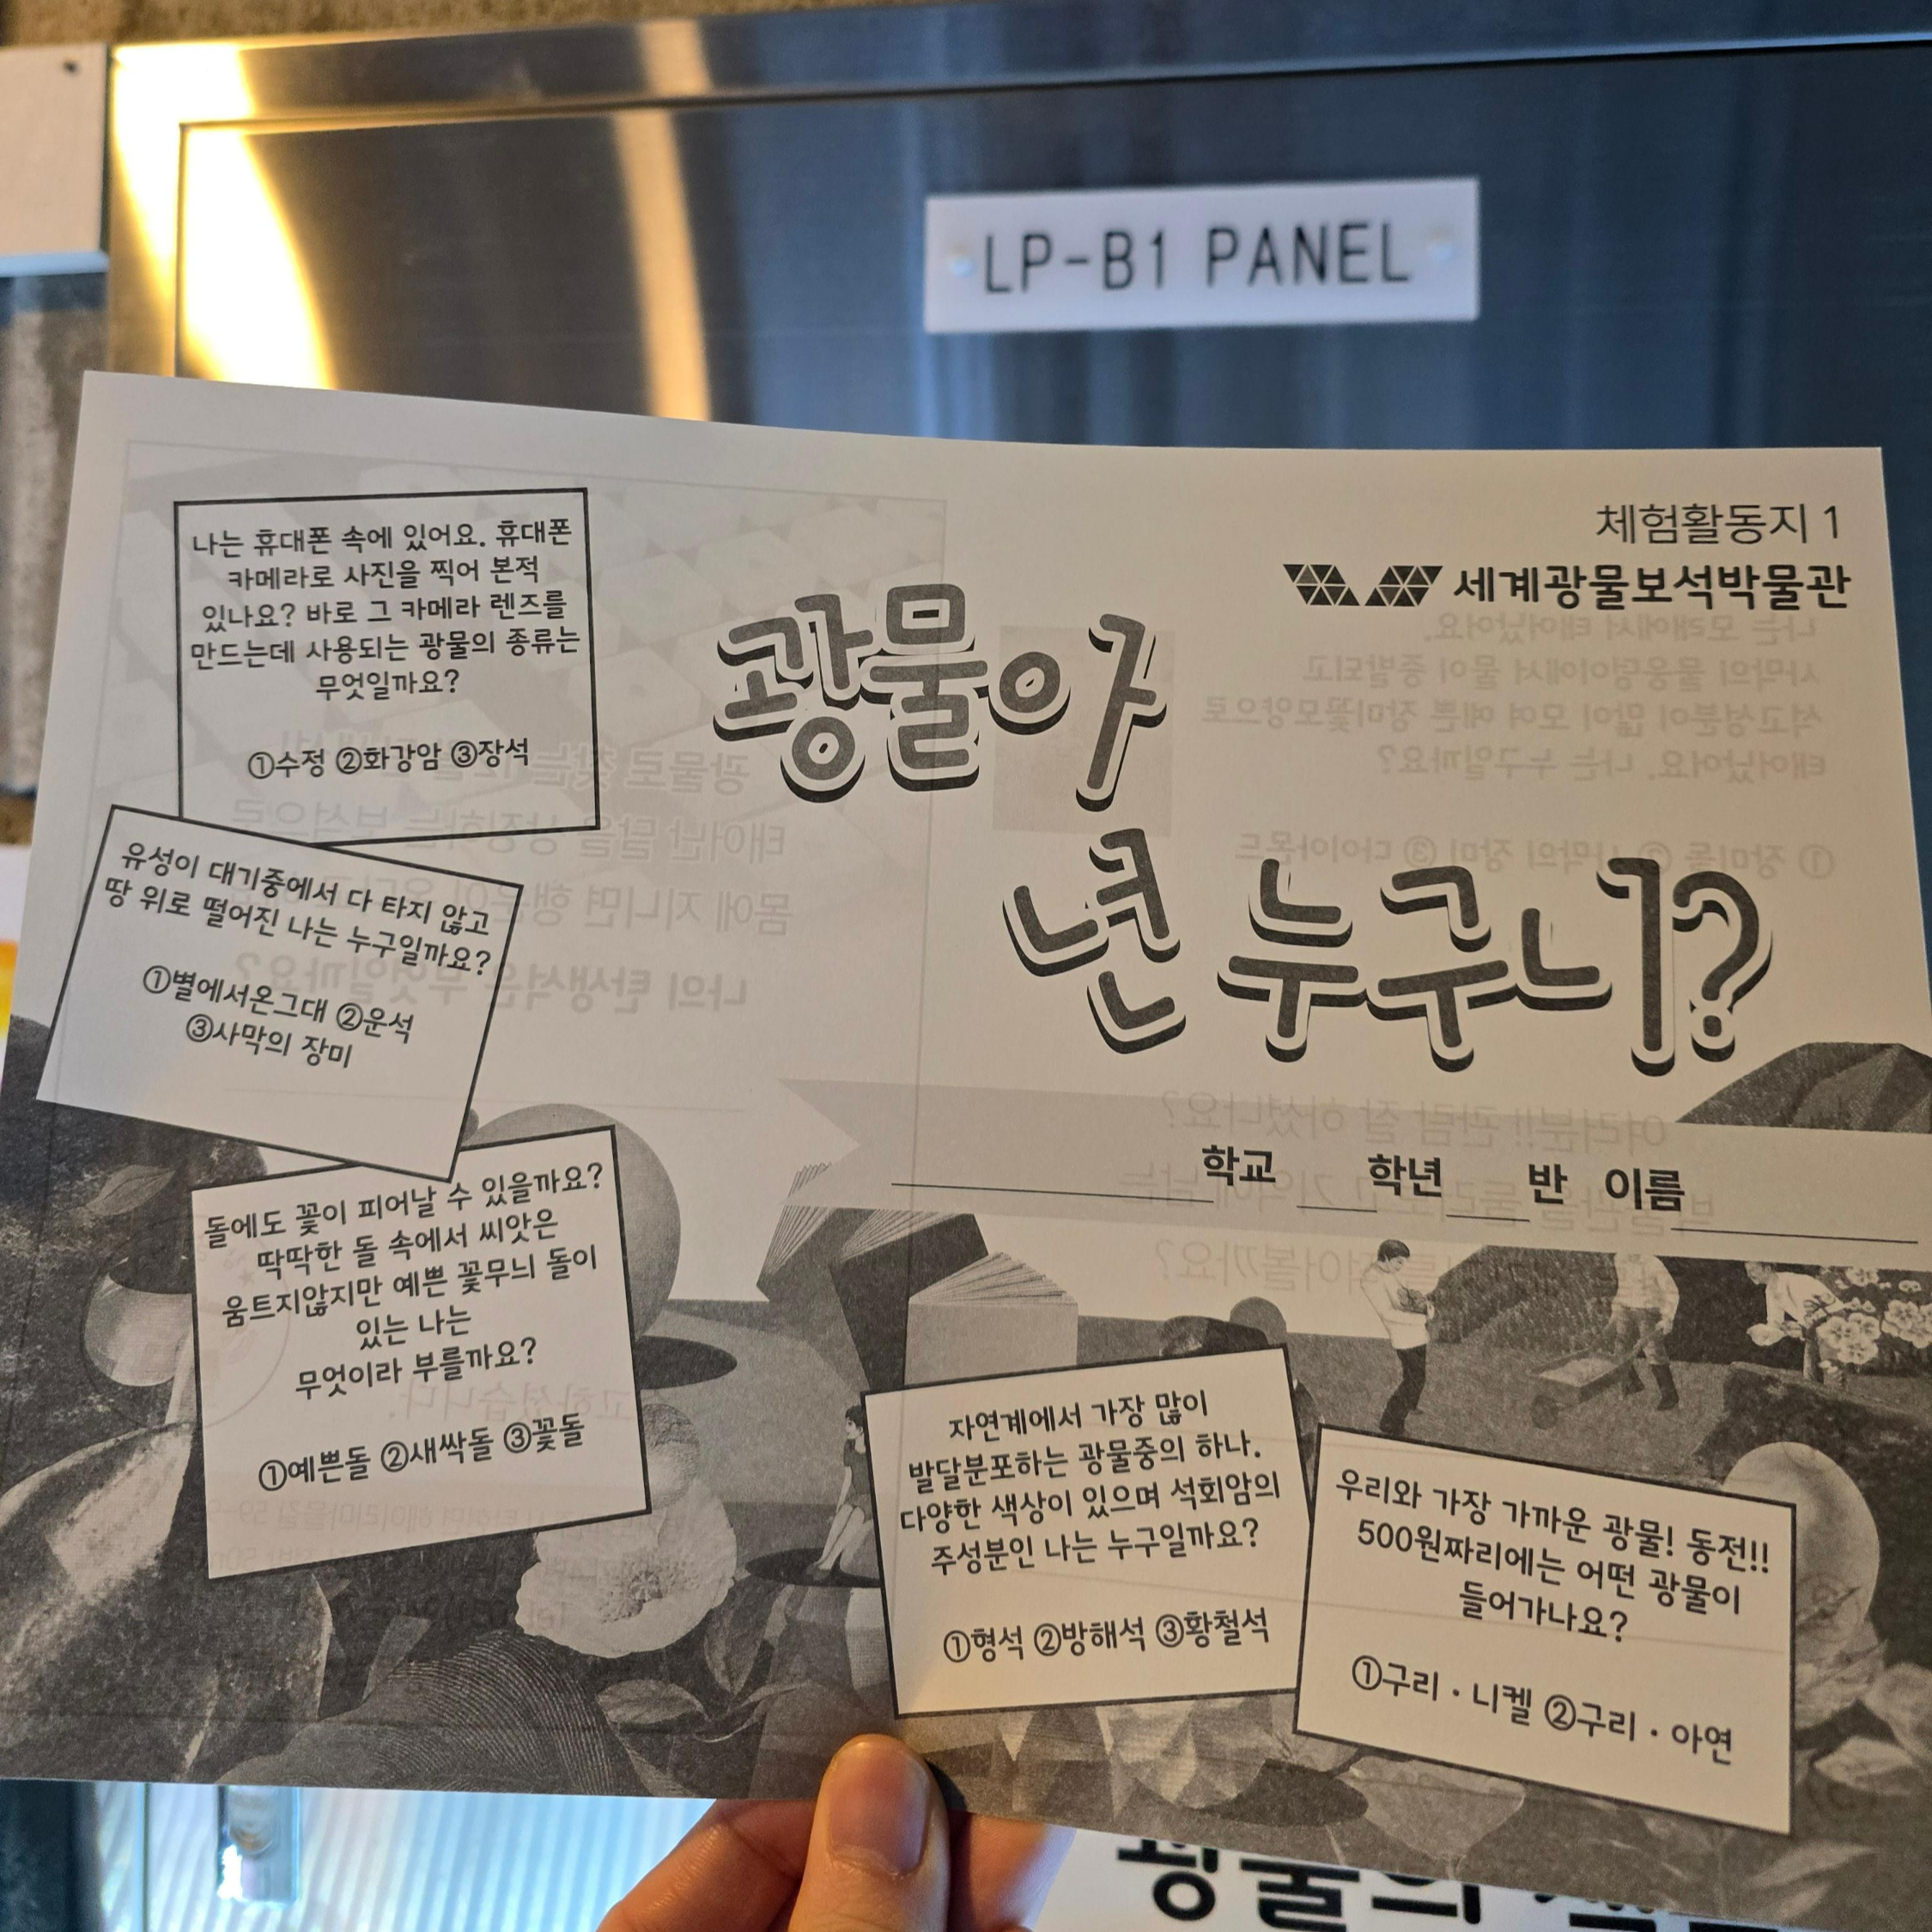 LP-B1 PANEL
체험활동지 1
세계광물보석박물관
광물아
넌 누구니?
학교 학년 반 이름
나는 휴대폰 속에 있어요. 휴대폰
카메라로 사진을 찍어 본적
있나요? 바로 그 카메라 렌즈를
만드는데 사용되는 광물의 종류는
무엇일까요?
①수정 ②화강암 ③장석
유성이 대기중에서 다 타지 않고
땅 위로 떨어진 나는 누구일까요?
①별에서온그대 ②운석
③사막의 장미
돌에도 꽃이 피어날 수 있을까요?
딱딱한 돌 속에서 씨앗은
움트지않지만 예쁜 꽃무늬 돌이
있는 나는
무엇이라 부를까요?
①예쁜돌 ②새싹돌 ③꽃돌
자연계에서 가장 많이
발달분포하는 광물중의 하나.
다양한 색상이 있으며 석회암의
주성분인 나는 누구일까요?
①형석 ②방해석 ③황철석
우리와 가장 가까운 광물! 동전!!
500원짜리에는 어떤 광물이
들어가나요?
①구리 · 니켈 ②구리 · 아연
광물의